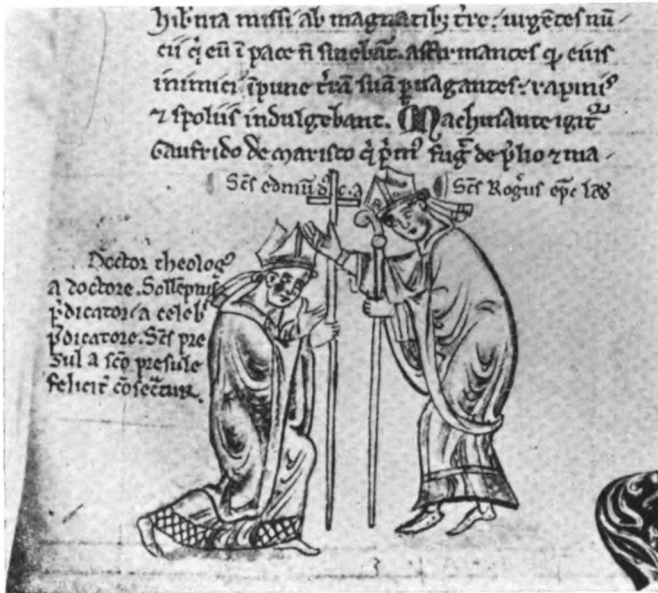 hib'nia missi ab magnatib; t're. urgētes nū-
cii q̇ eū ī pace n̄ sinebāt. affirmantes q̨ eius
inimici īpune t'rā suā ꝑuagantes. rapinis
⁊ spoliis indulgebant. Machinante igit'
Gaufrido de Marisco q̇ fug̃ de p̃lio ⁊ ma-
Sc̄s edmūd' c.a
Sc̄s Rog'us ep̄c
Doctor theologꝰ
a doctore. Sollēpnis
p̄dicator a celeb'
p̄dicatore. Sc̄s pre
sul a sc̄o presule
felicit' cōsecat̃ur.